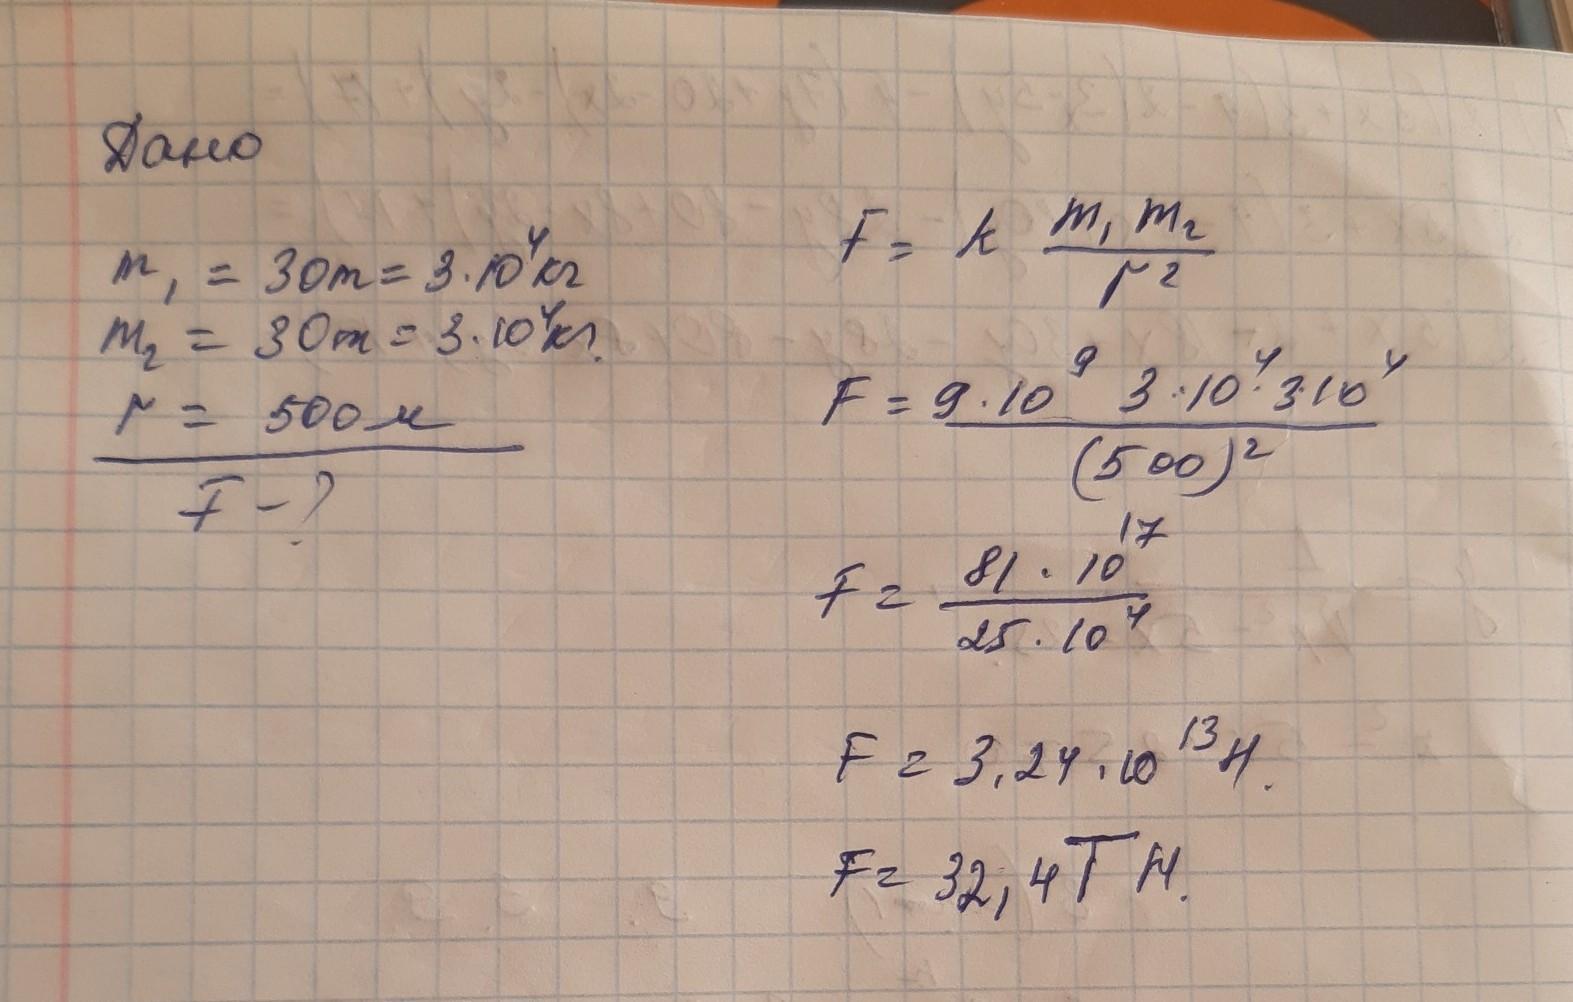 Дано
m₁ = 30т = 3·10⁴кг
m₂ = 30т = 3·10⁴кг.
r = 500м
F - ?
F = k m₁ m₂ / r²
F = 9·10⁹ 3·10⁴·3·10⁴ / (500)²
F = 81·10¹⁷ / 25·10⁴
F = 3,24·10¹³ Н.
F = 32,4 Т Н.